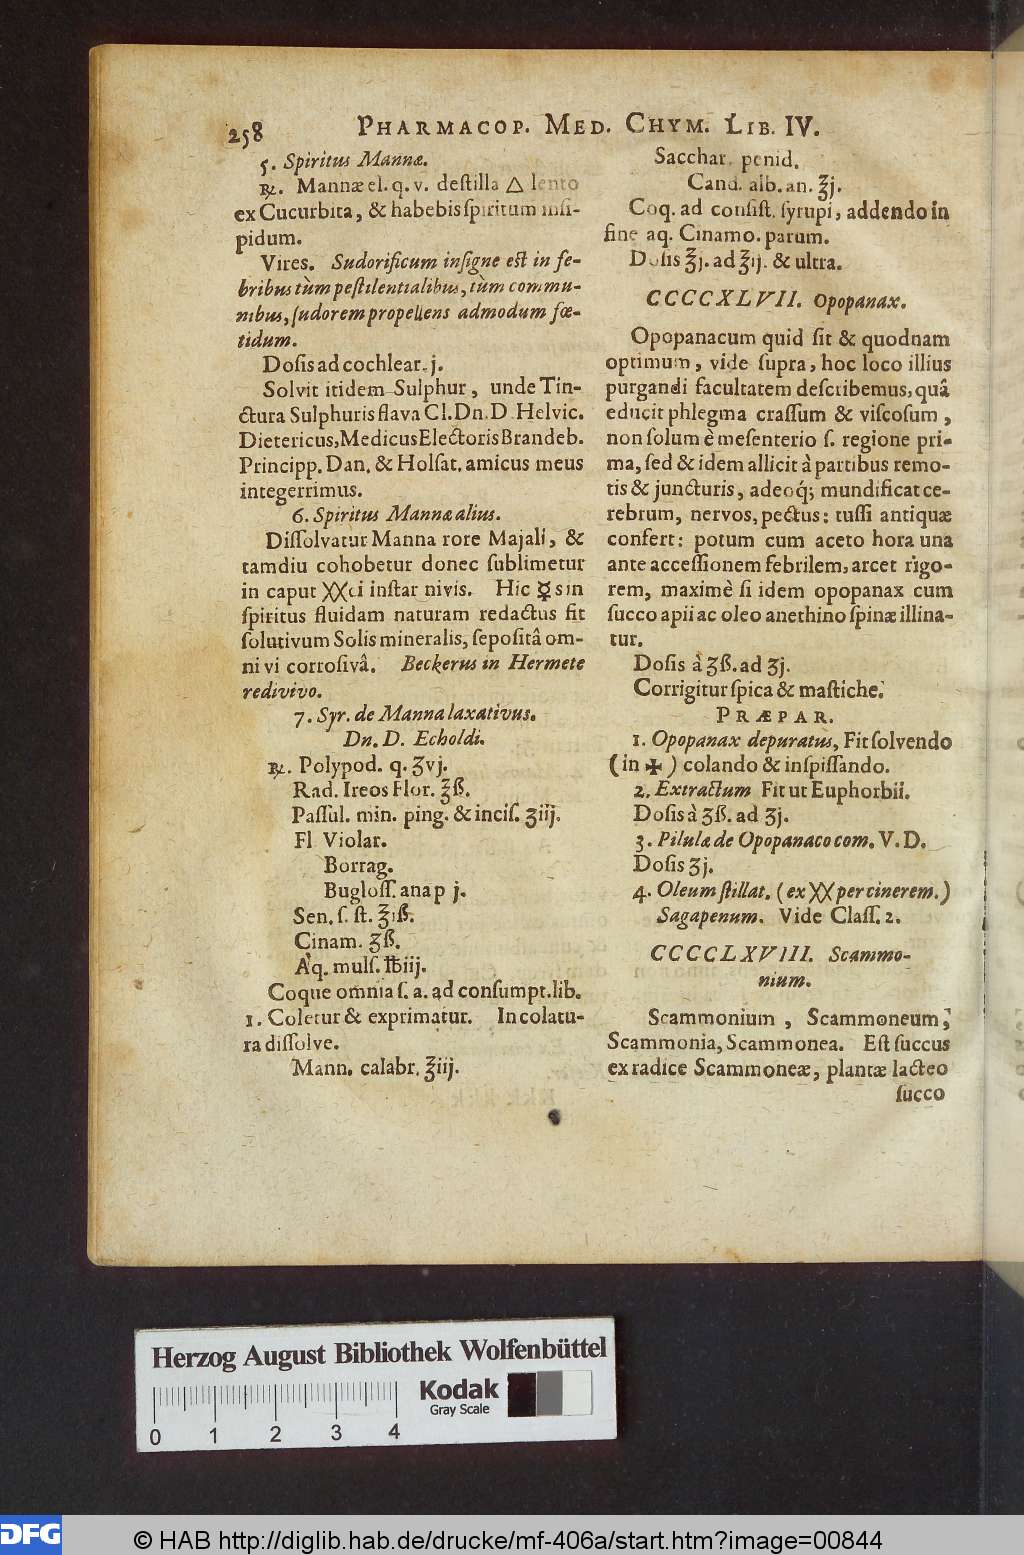 258 PHARMACOP. MED. CHYM. LIB. IV.
5. Spiritus Mannæ.
℞. Mannæ el. q. v. deſtilla △ lento
ex Cucurbita, & habebis ſpiritum inſi-
pidum.
Vires. Sudorificum inſigne eſt in fe-
bribus tùm peſtilentialibus, tùm commu-
nibus, ſudorem propellens admodum fœ-
tidum.
Doſis ad cochlear. j.
Solvit itidem Sulphur, unde Tin-
ctura Sulphuris flava Cl. Dn. D Helvic.
Dietericus, Medicus Electoris Brandeb.
Principp. Dan. & Holſat. amicus meus
integerrimus.
6. Spiritus Mannæ alius.
Diſſolvatur Manna rore Majali, &
tamdiu cohobetur donec ſublimetur
in caput XXci inſtar nivis. Hic ☿s in
ſpiritus fluidam naturam redactus fit
ſolutivum Solis mineralis, ſepoſitâ om-
ni vi corroſivâ. Beckerus in Hermete
redivivo.
7. Syr. de Manna laxativus.
Dn. D. Echoldi.
℞. Polypod. q. ʒvj.
Rad. Ireos Flor. ℥ß.
Paſſul. min. ping. & inciſ. ʒiij.
Fl Violar.
Borrag.
Bugloſſ. ana p j.
Sen. ſ. ſt. ℥iß.
Cinam. ʒß.
Aq. mulſ. ℔iij.
Coque omnia ſ. a. ad conſumpt. lib.
1. Coletur & exprimatur. In colatu-
ra diſſolve.
Mann. calabr. ℥iij.
Sacchar. penid.
Cand. alb. an. ℥j.
Coq. ad conſiſt. ſyrupi, addendo in
fine aq. Cinamo. parum.
Doſis ℥j. ad ℥ij. & ultra.
CCCCXLVII. Opopanax.
Opopanacum quid ſit & quodnam
optimum, vide ſupra, hoc loco illius
purgandi facultatem deſcribemus, quâ
educit phlegma craſſum & viſcoſum,
non ſolum è meſenterio ſ. regione pri-
ma, ſed & idem allicit à partibus remo-
tis & juncturis, adeoq́; mundificat ce-
rebrum, nervos, pectus: tuſſi antiquæ
confert: potum cum aceto hora una
ante acceſſionem febrilem, arcet rigo-
rem, maximè ſi idem opopanax cum
ſucco apii ac oleo anethino ſpinæ illina-
tur.
Doſis à ʒß. ad ʒj.
Corrigitur ſpica & maſtiche.
PRÆPAR.
1. Opopanax depuratus, Fit ſolvendo
(in ✠) colando & inſpiſſando.
2. Extractum Fit ut Euphorbii.
Doſis à ʒß. ad ʒj.
3. Pilulæ de Opopanaco com. V. D.
Doſis ʒj.
4. Oleum ſtillat. (ex XX per cinerem.)
Sagapenum. Vide Claſſ. 2.
CCCCLXVIII. Scammo-
nium.
Scammonium, Scammoneum,
Scammonia, Scammonea. Eſt ſuccus
ex radice Scammoneæ, plantæ lacteo
ſucco
Herzog August Bibliothek Wolfenbüttel
Kodak
Gray Scale
0 1 2 3 4
DFG © HAB http://diglib.hab.de/drucke/mf-406a/start.htm?image=00844